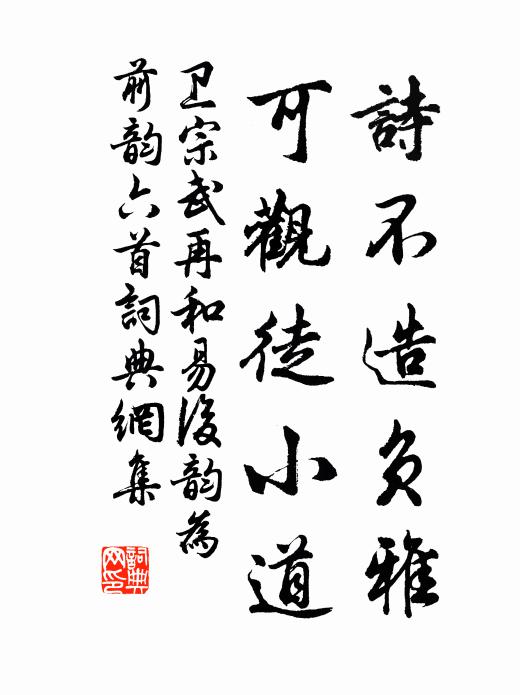 詩不造負雅
可觀徒小道
卫宗武再和易後韵為
前韵六首詞典網集
詞典网印